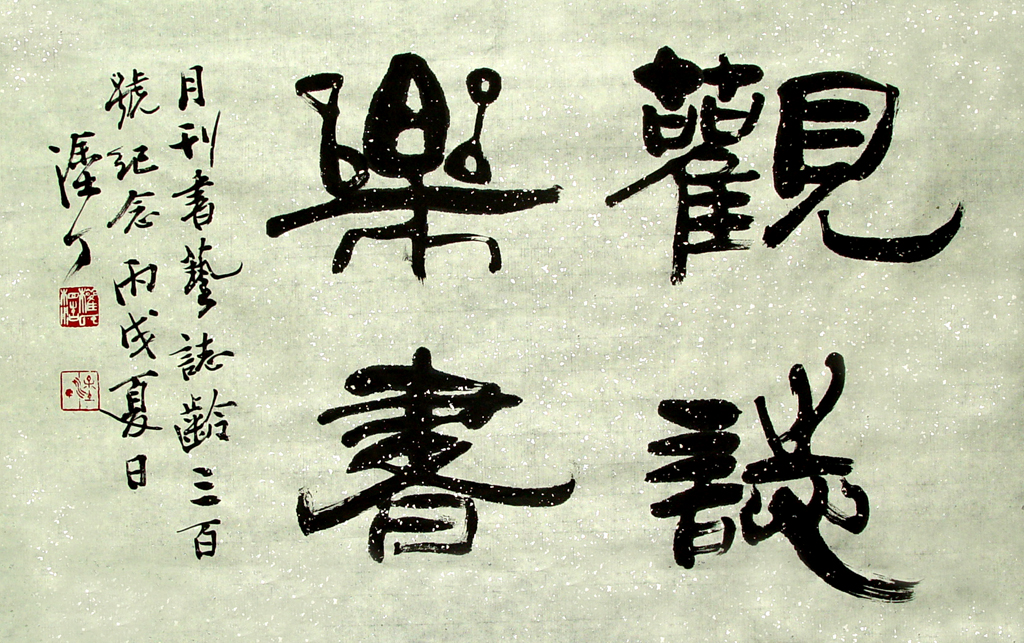 觀誌
樂書
月刊書藝誌齡三百
號紀念丙戌夏日